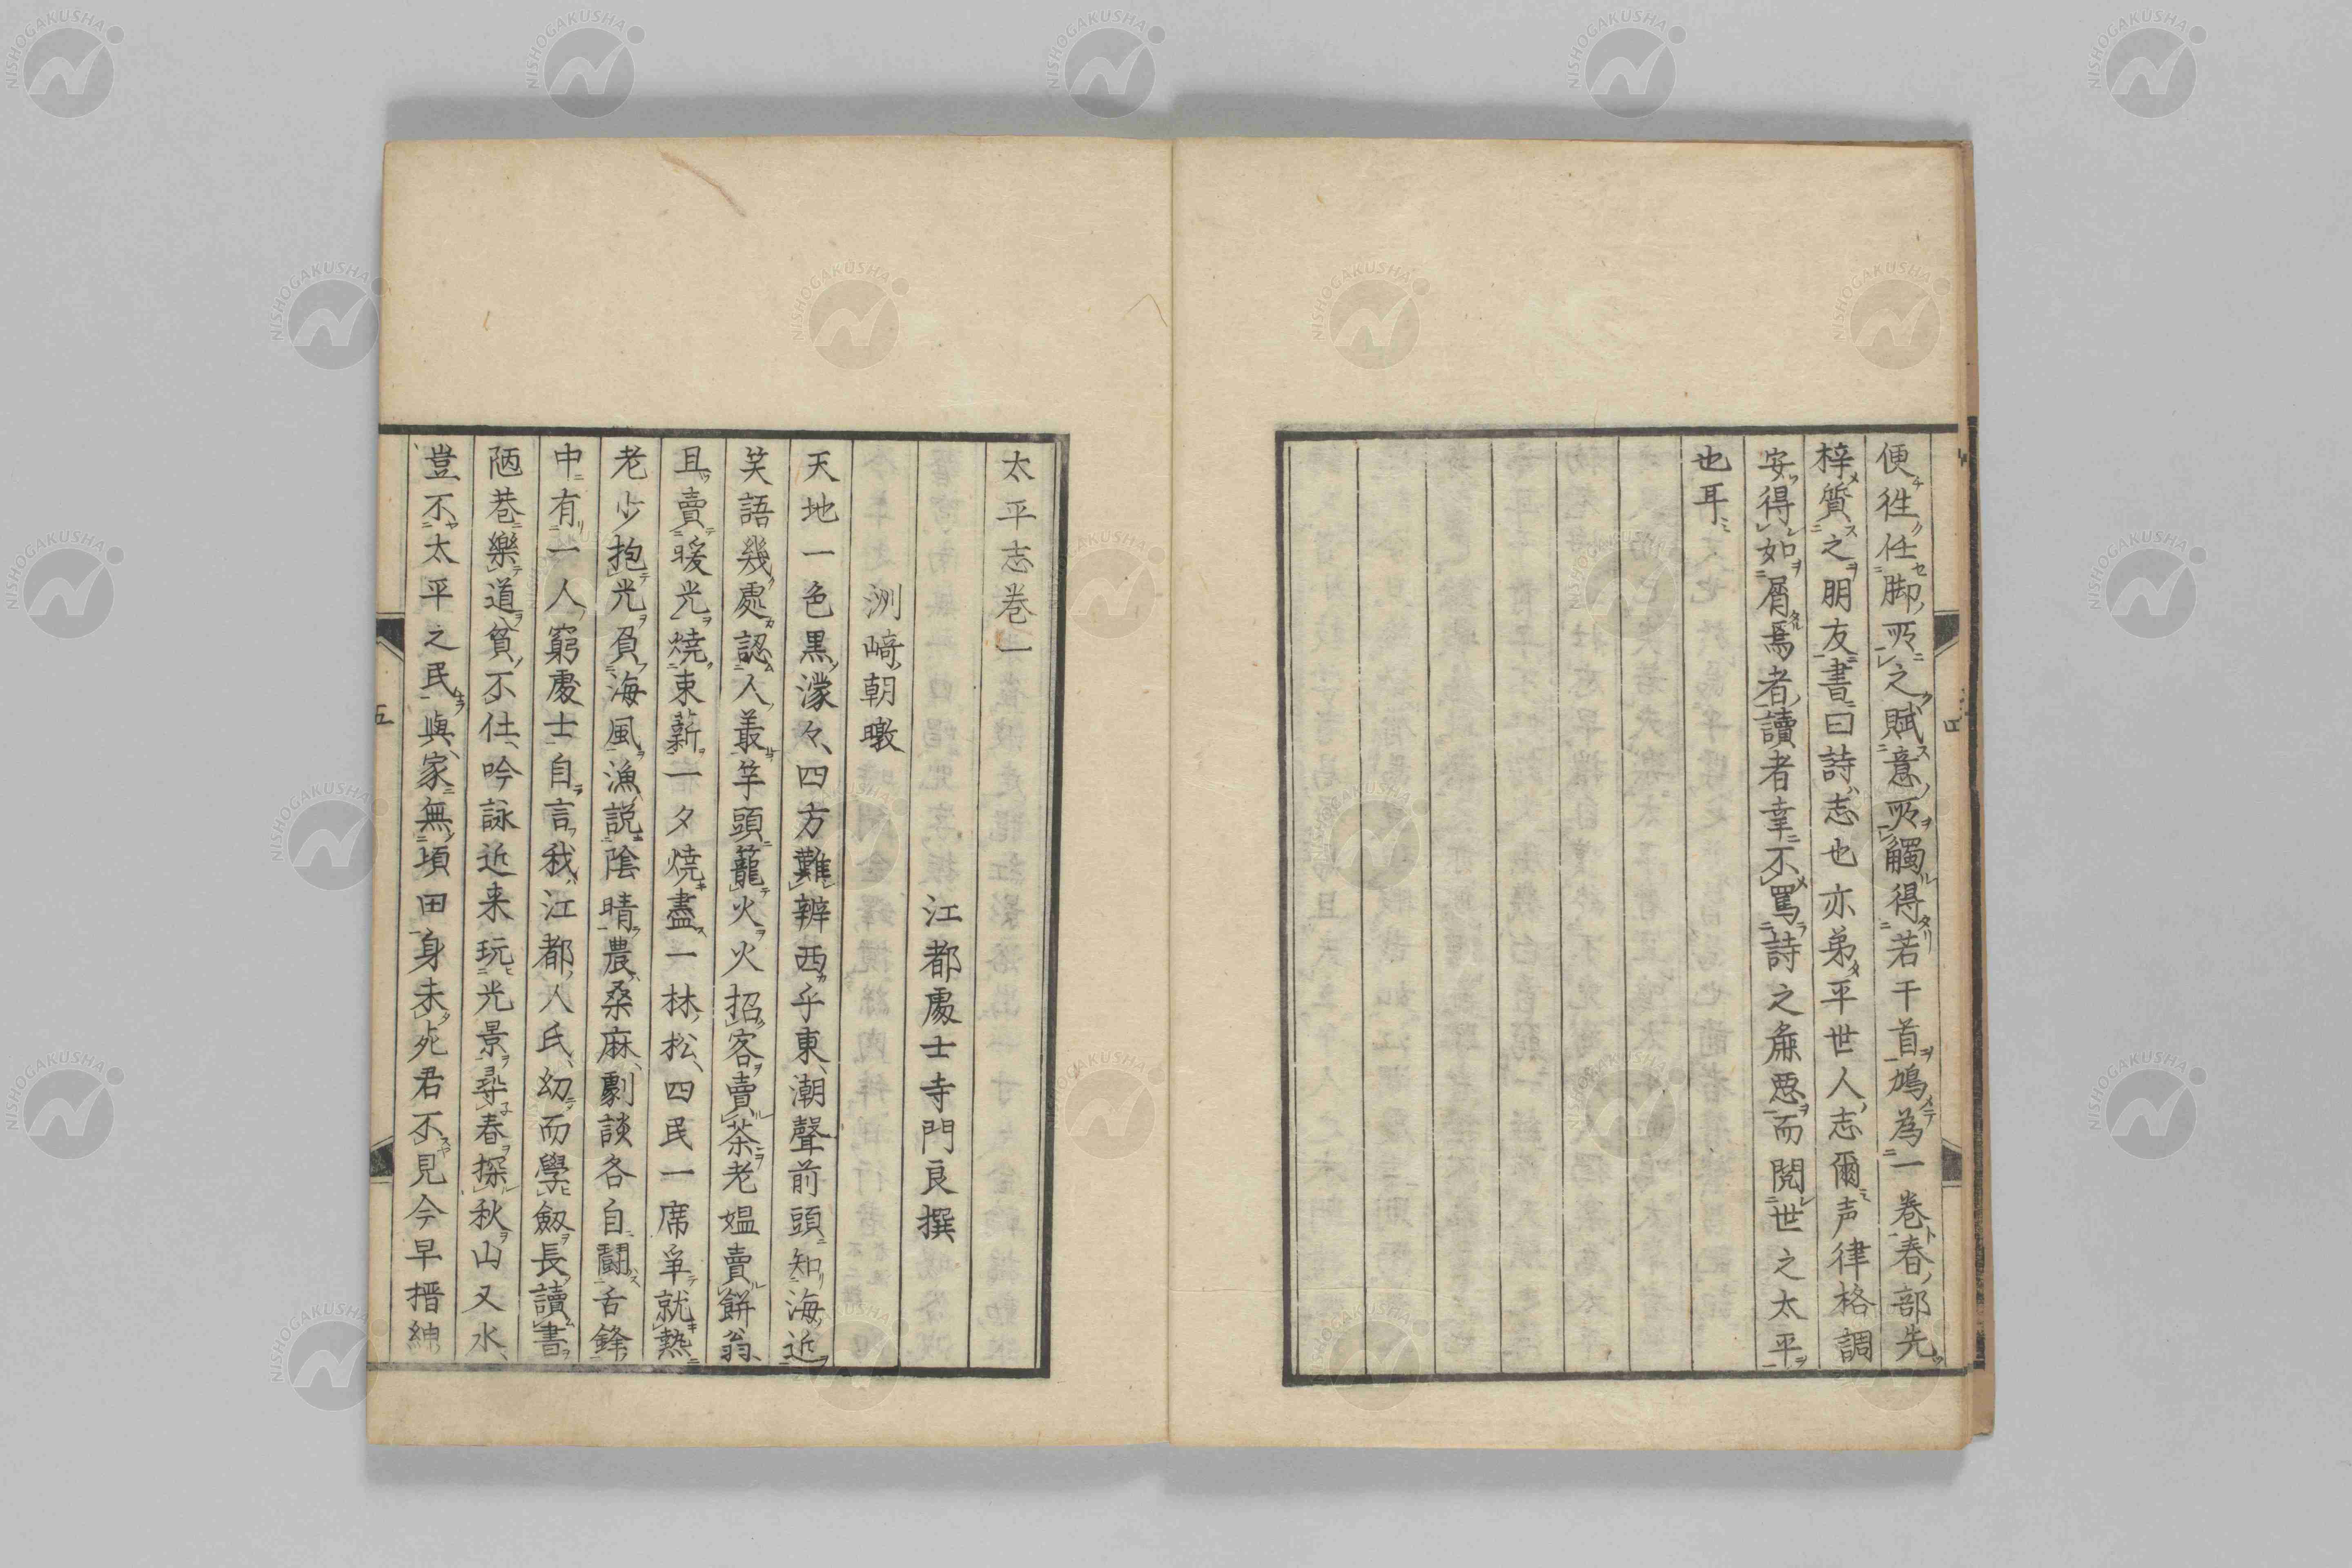 便徃任脚所之賦意所觸得若干首鳩為一卷春部先
梓質之朋友書曰詩志也亦弟平世人志爾声律格調
安得如屑焉者讀者幸不罵詩之麁惡而閲世之太平
也耳
太平志卷一
江都處士寺門良撰
洲﨑朝暾
天地一色黒濛々四方難辨西乎東潮聲前頭知海近
笑語幾處認人叢竿頭籠火火招客賣茶老媼賣餅翁
且賣暖光燒束薪一夕燒盡一林松四民一席爭就熱
老少抱光負海風漁說陰晴農桑麻劇談各自鬪舌鋒
中有一人窮處士自言我江都人氏幼而學劔長讀書
陋巷樂道貧不仕吟詠近来玩光景尋春探秋山又水
豈不太平之民與家無頃田身未死君不見今早搢紳
五
NISHOGAKUSHA